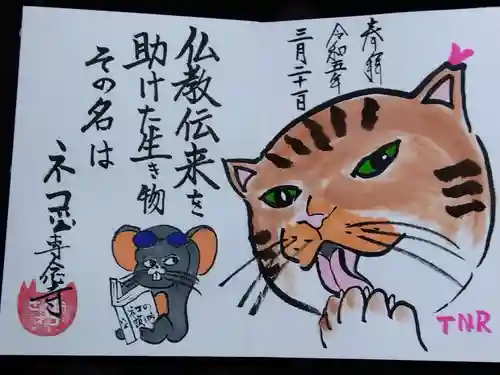 奉拝
令和五年
三月二十一日
仏教伝来を
助けた生き物
その名は
ネコ
專念寺
TNR